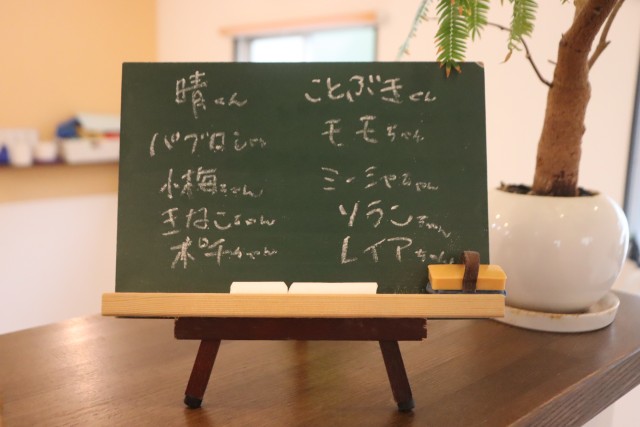 晴くん ことぶきくん
パブロくん モモちゃん
小梅ちゃん ミーシャちゃん
きなこちゃん ソランちゃん
ポチちゃん レイアちゃん